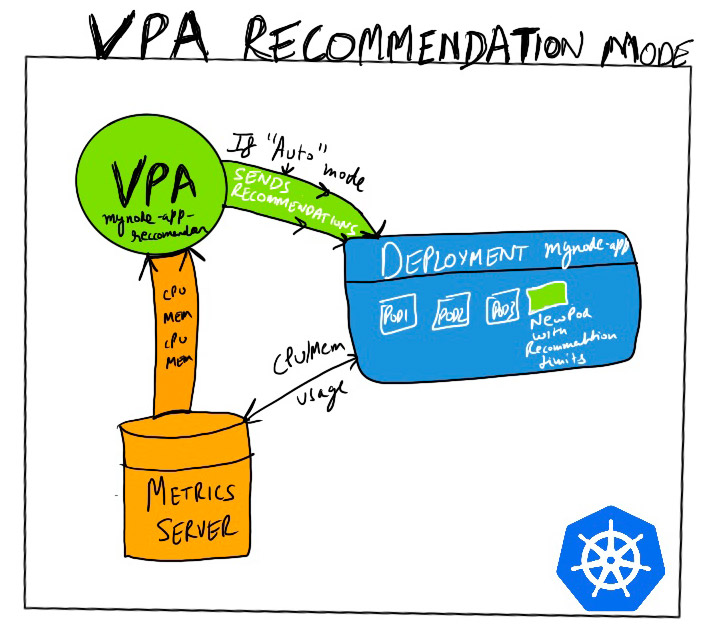 VPA RECOMMENDATION MODE
VPA
mynode-app-
reccomender
If "Auto" mode
SENDS
RECOMMENDATIONS
DEPLOYMENT mynode-app
POD1
POD2
POD3
New Pod
with
Recommendation
limits
CPU
MEM
CPU
MEM
CPU/Mem
usage
METRICS
SERVER